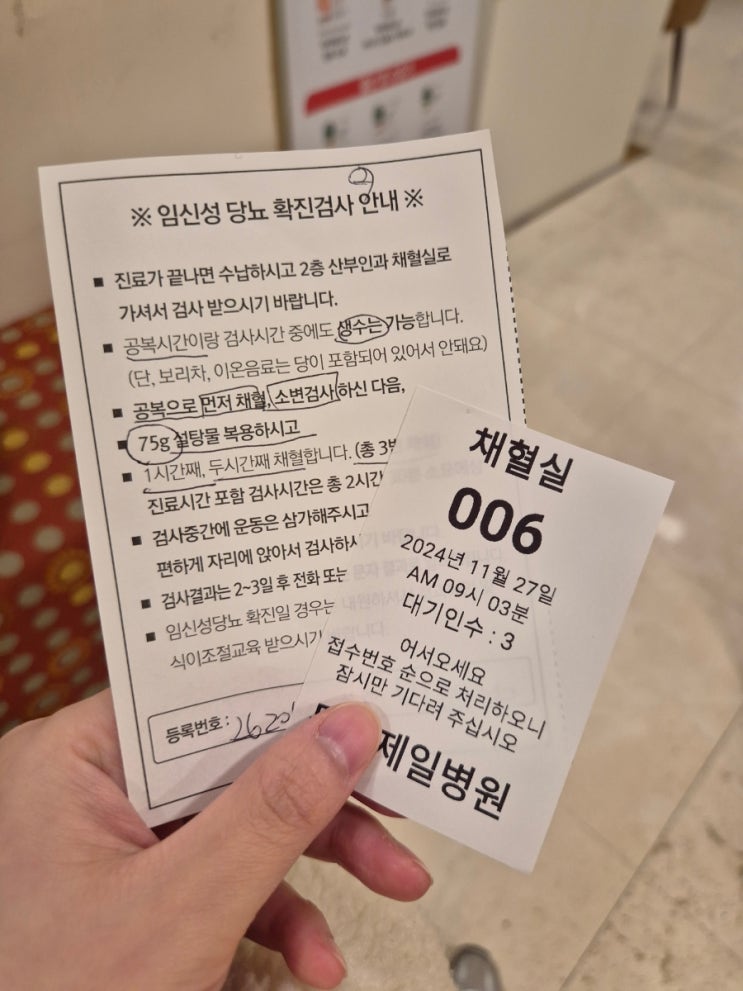 ※ 임신성 당뇨 확진검사 안내 ※
■ 진료가 끝나면 수납하시고 2층 산부인과 채혈실로
가셔서 검사 받으시기 바랍니다.
■ 공복시간이랑 검사시간 중에도 생수는 가능합니다.
(단, 보리차, 이온음료는 당이 포함되어 있어서 안돼요)
■ 공복으로 먼저 채혈, 소변검사 하신 다음,
■ 75g 설탕물 복용하시고
■ 1시간째, 두시간째 채혈합니다. (총 3번
진료시간 포함 검사시간은 총 2시간
■ 검사중간에 운동은 삼가해주시고
편하게 자리에 앉아서 검사하시
■ 검사결과는 2~3일 후 전화 또는
■ 임신성당뇨 확진일 경우는
식이조절교육 받으시기
등록번호 :
채혈실
006
2024년 11월 27일
AM 09시 03분
대기인수 : 3
어서오세요
접수번호 순으로 처리하오니
잠시만 기다려 주십시오
제일병원